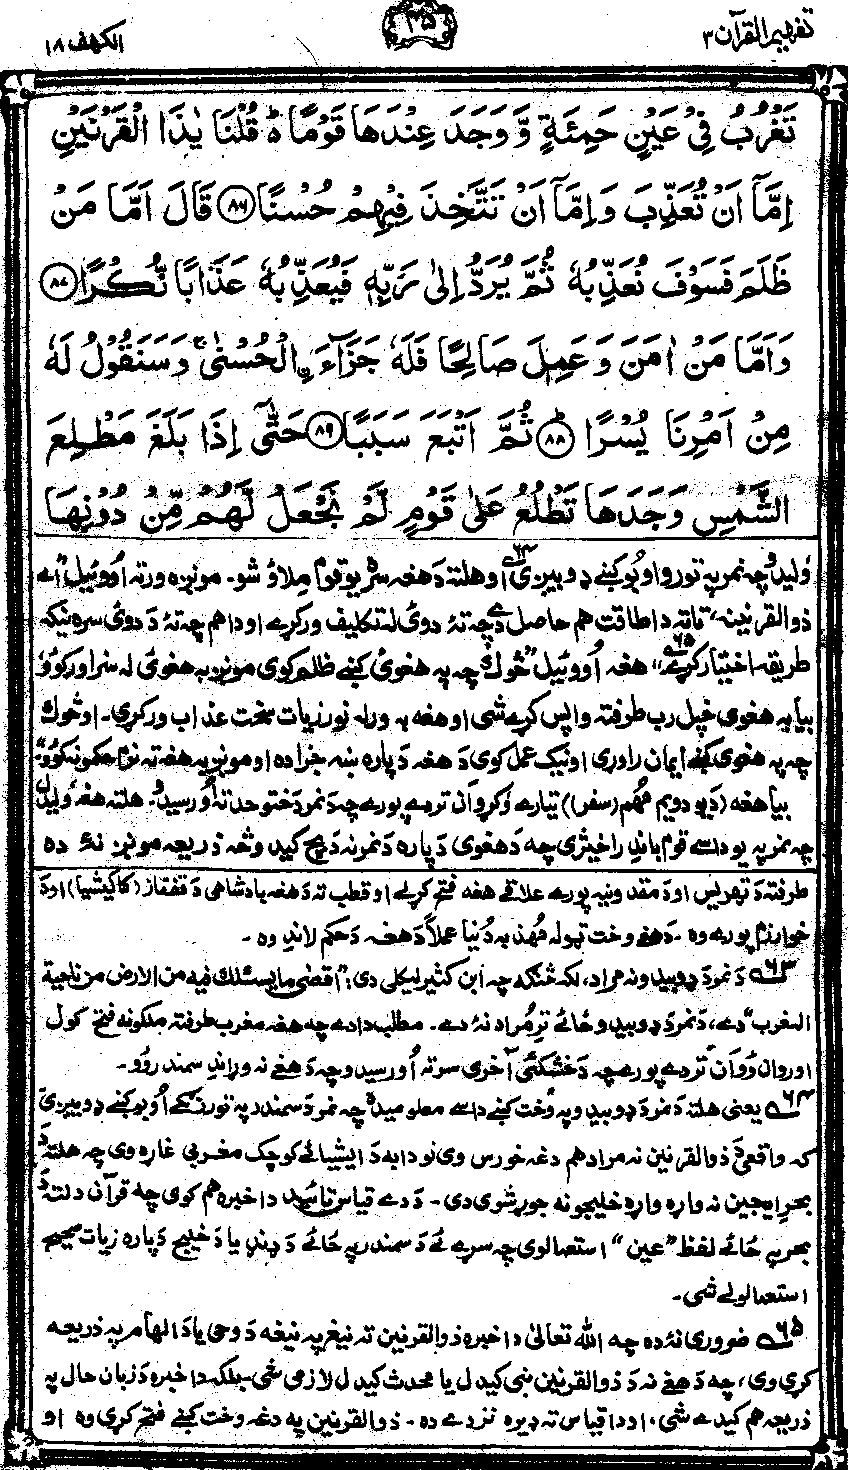 تفهیم القرآن ۳
۳۵
الکهف ۱۸
تَغْرُبُ فِیْ عَیْنٍ حَمِئَةٍ وَّ وَجَدَ عِنْدَهَا قَوْمًا ؕ قُلْنَا یٰذَا الْقَرْنَیْنِ
اِمَّاۤ اَنْ تُعَذِّبَ وَ اِمَّاۤ اَنْ تَتَّخِذَ فِیْهِمْ حُسْنًا ﴿۸۶﴾ قَالَ اَمَّا مَنْ
ظَلَمَ فَسَوْفَ نُعَذِّبُهٗ ثُمَّ یُرَدُّ اِلٰی رَبِّهٖ فَیُعَذِّبُهٗ عَذَابًا نُّکْرًا ﴿۸۷﴾
وَ اَمَّا مَنْ اٰمَنَ وَ عَمِلَ صَالِحًا فَلَهٗ جَزَآءَ ِۨالْحُسْنٰی ۚ وَ سَنَقُوْلُ لَهٗ
مِنْ اَمْرِنَا یُسْرًا ﴿۸۸﴾ؕ ثُمَّ اَتْبَعَ سَبَبًا ﴿۸۹﴾ حَتّٰۤی اِذَا بَلَغَ مَطْلِعَ
الشَّمْسِ وَجَدَهَا تَطْلُعُ عَلٰی قَوْمٍ لَّمْ نَجْعَلْ لَّهُمْ مِّنْ دُوْنِهَا
وُلیدل چه نمر په تورو اوبو کښے ډوبیږی ۶۴ او هلته د هغه سره یو قوم میلاؤ شو۔ مونږه ورته اُووئیل "اے
ذوالقرنینه! تا ته دا طاقت هم حاصل دے چه تۀ دوی له تکلیف ورکړے او دا هم چه تۀ د دوی سره نیکه
طریقه اختیار کړے ۶۵" هغه اُووئیل "څوک چه په هغوی کښے ظلم کوی مونږ به هغوی له سزا ورکوو
بیا به هغوی خپل رب طرفته واپس کړے شی او هغه به ورله نور زیات سخت عذاب ورکړی۔ او څوک
چه په هغوی کښے ایمان راوړی او نیک عمل کوی د هغه دپاره ښه جزا ده او مونږ به هغه ته نرم حکمونه کوو"
بیا هغه (د یو دویم مُهم (سفر)) تیارے وُکړو آن تر دے پورے چه د نمر د ختو حد ته اُورسیدو۔ هلته هغه وُلیدل
چه نمر په یو داسے قوم باندِ راخیژی چه د هغوی دپاره د نمر نه د بچ کیدو څه ذریعه مونږ نۀ ده
طرفته د تهریس او د مقدونیه پورے علاقے هغه فتح کړلے او قطب ته د هغه بادشاهی د قفقاز (کاکیشیا) او د
خوارزم پورے وه۔ د هغے وخت ټوله مُهذبه دُنیا عملاً د هغه د حکم لاندِ وه۔
۶۳ د نمر د ډوبیدو نه مراد، لکه څنګه چه ابن کثیر لیکلی دی: "اقصٰی ما یسلک فیه من الارض من ناحیة
المغرب" دے، د نمر د ډوبیدو ځائے ترِ مُراد نۀ دے۔ مطلب دا دے چه هغه مغرب طرفته ملکونه فتح کول
او روان وُو آن تر دے پورے چه د خشکئی آخری سر ته اُورسیدو چه د هغے نه وړاندِ سمندر وُو۔
۶۴ یعنی هلته د نمر د ډوبیدو په وخت کښے داسے معلومیده چه نمر د سمندر په تورو اُوبو کښے ډوبیږی
که واقعی د ذوالقرنین نه مراد هم دغه خورس وی نو دا به د ایشیائے کوچک مغربی غاړه وی چه هلته د
بحرِ ایجین نه واړه واړه خلیجونه جوړ شوی دی۔ د دے قیاس تائید دا خبره هم کوی چه قرآن دلته د
بحر په ځائے لفظ "عین" استعمالوی چه سرے ئے د سمندر په ځائے د ډنډ یا د خلیج دپاره زیات صحیح
استعمالولے شی۔
۶۵ ضروری نۀ ده چه الله تعالیٰ دا خبره ذوالقرنین ته نیغ په نیغه د وحی یا د الهام په ذریعه
کړی وی، چه د هغے نه د ذوالقرنین نبی کیدل یا محدث کیدل لازمی شی۔ بلکه دا خبره د زبان حال په
ذریعه هم کیدے شی، او دا قیاس ته ډیره نزدے ده۔ ذوالقرنین په دغه وخت کښے فتح کړی وه او